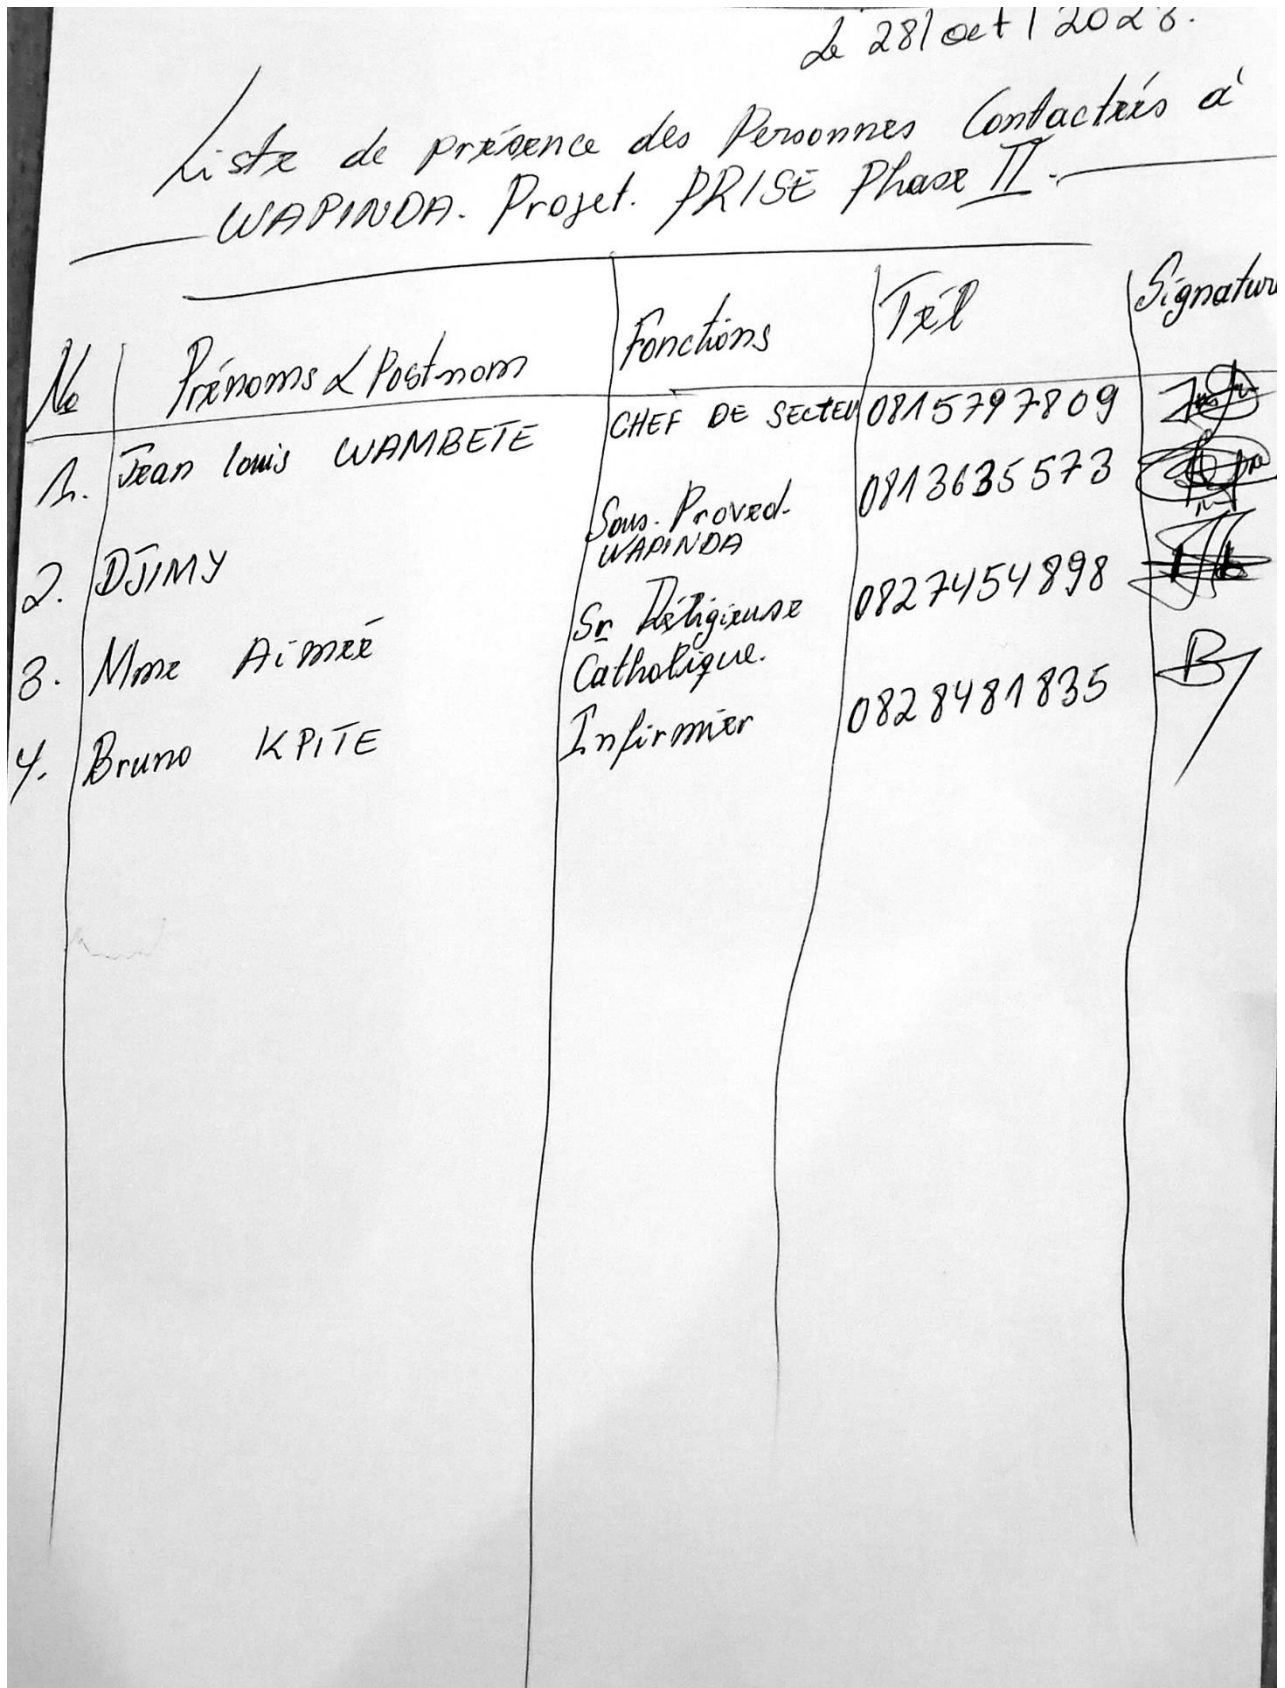 Le 28/oct/2023.
Liste de présence des Personnes Contactées à
WAPINDA. Projet. PRISE Phase II.
No Prénoms & Postnom Fonctions Tél Signature
1. Jean louis WAMBETE CHEF DE SECTEU 0815797809
2. DJIMY Sous-Proved. WAPINDA 0813635573
3. Mme Aimée Sr Réligieuse Catholique. 0827454898
4. Bruno KPITE Infirmier 0828481835